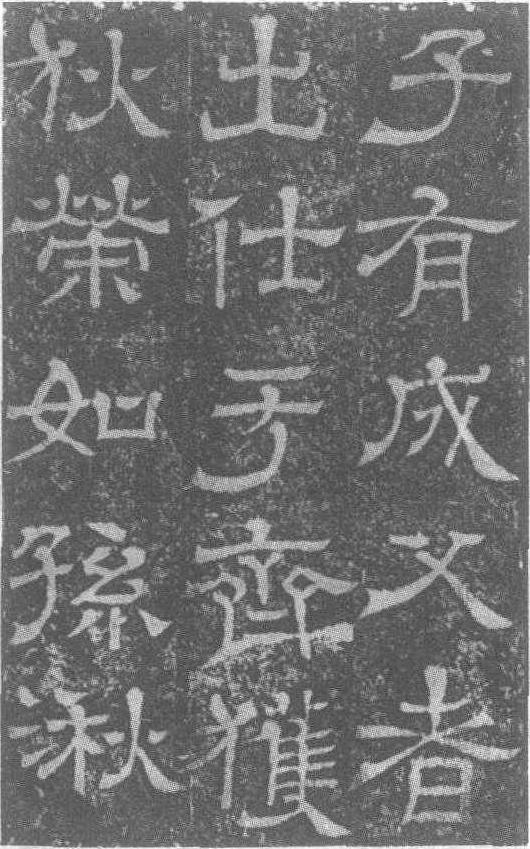 子有成父者
出仕于齊獲
狄榮如孫湫